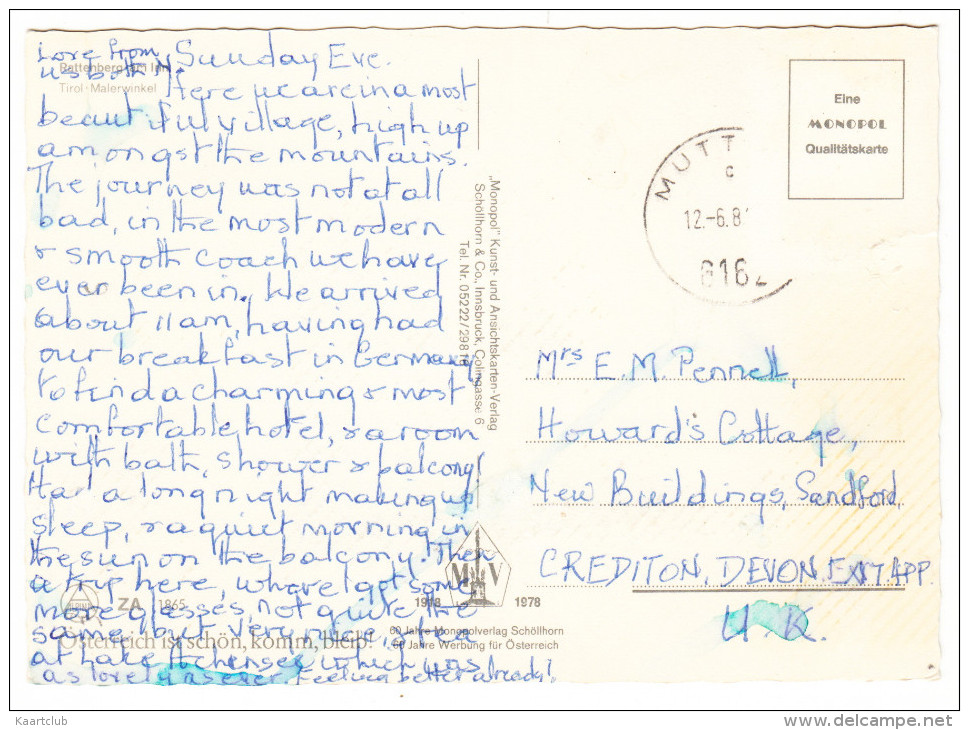 Love from
us both
Rattenberg am Inn
Tirol · Malerwinkel
Sunday Eve.
Here we are in a most
beautiful village, high up
amongst the mountains.
The journey was not at all
bad, in the most modern
& smooth coach we have
ever been in. We arrived
about 11 am, having had
our breakfast in Germany,
to find a charming & most
comfortable hotel, & a room
with bath, shower & balcony!
Had a long night making up
sleep, & a quiet morning in
the sun on the balcony! Then
a trip here, where I got some
more glesses not quite the
same, but very nice, & tea
at Lake Achensee which was
as lovely as ever. Feeling better already!
ZA 1865
Österreich ist schön, komm, bleib!
„Monopol" Kunst- und Ansichtskarten-Verlag
Schöllhorn & Co., Innsbruck, Colingasse 6
Tel. Nr. 05222/2981
MV
1918 1978
60 Jahre Monopolverlag Schöllhorn
60 Jahre Werbung für Österreich
Eine
MONOPOL
Qualitätskarte
MUTT
c
12.-6.8
6162
Mrs E. M. Pennell,
Howard's Cottage,
New Buildings, Sandford,
CREDITON, DEVON, EX17 4PP
U.K.
Kaartclub
www.delcampe.net